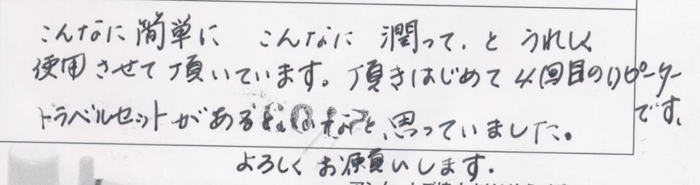 こんなに簡単に こんなに 潤って、と うれしく
使用させて頂いています。頂きはじめて4回目のリピーター
です。
トラベルセットがあるといいなと、思っていました。
よろしくお願いします。